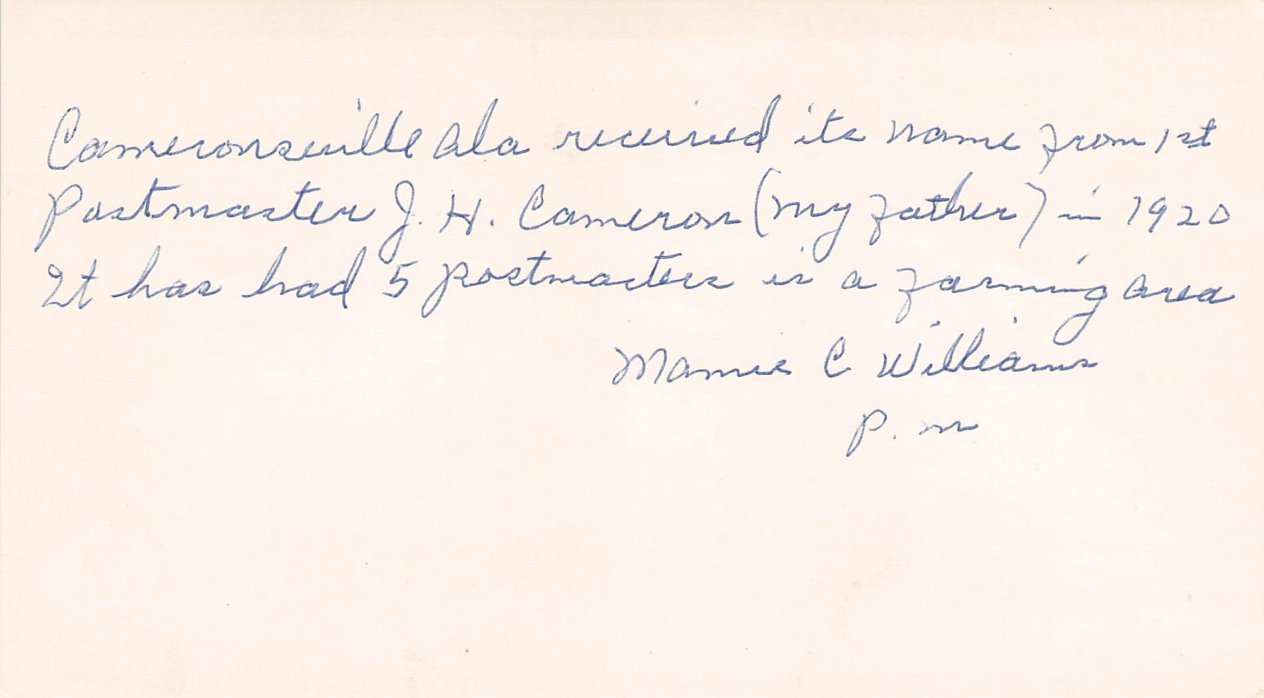 Cameronsville Ala received its name from 1st
Postmaster J. H. Cameron (my father) in 1920
It has had 5 postmasters is a farming area
Mamie C Williams
P. m